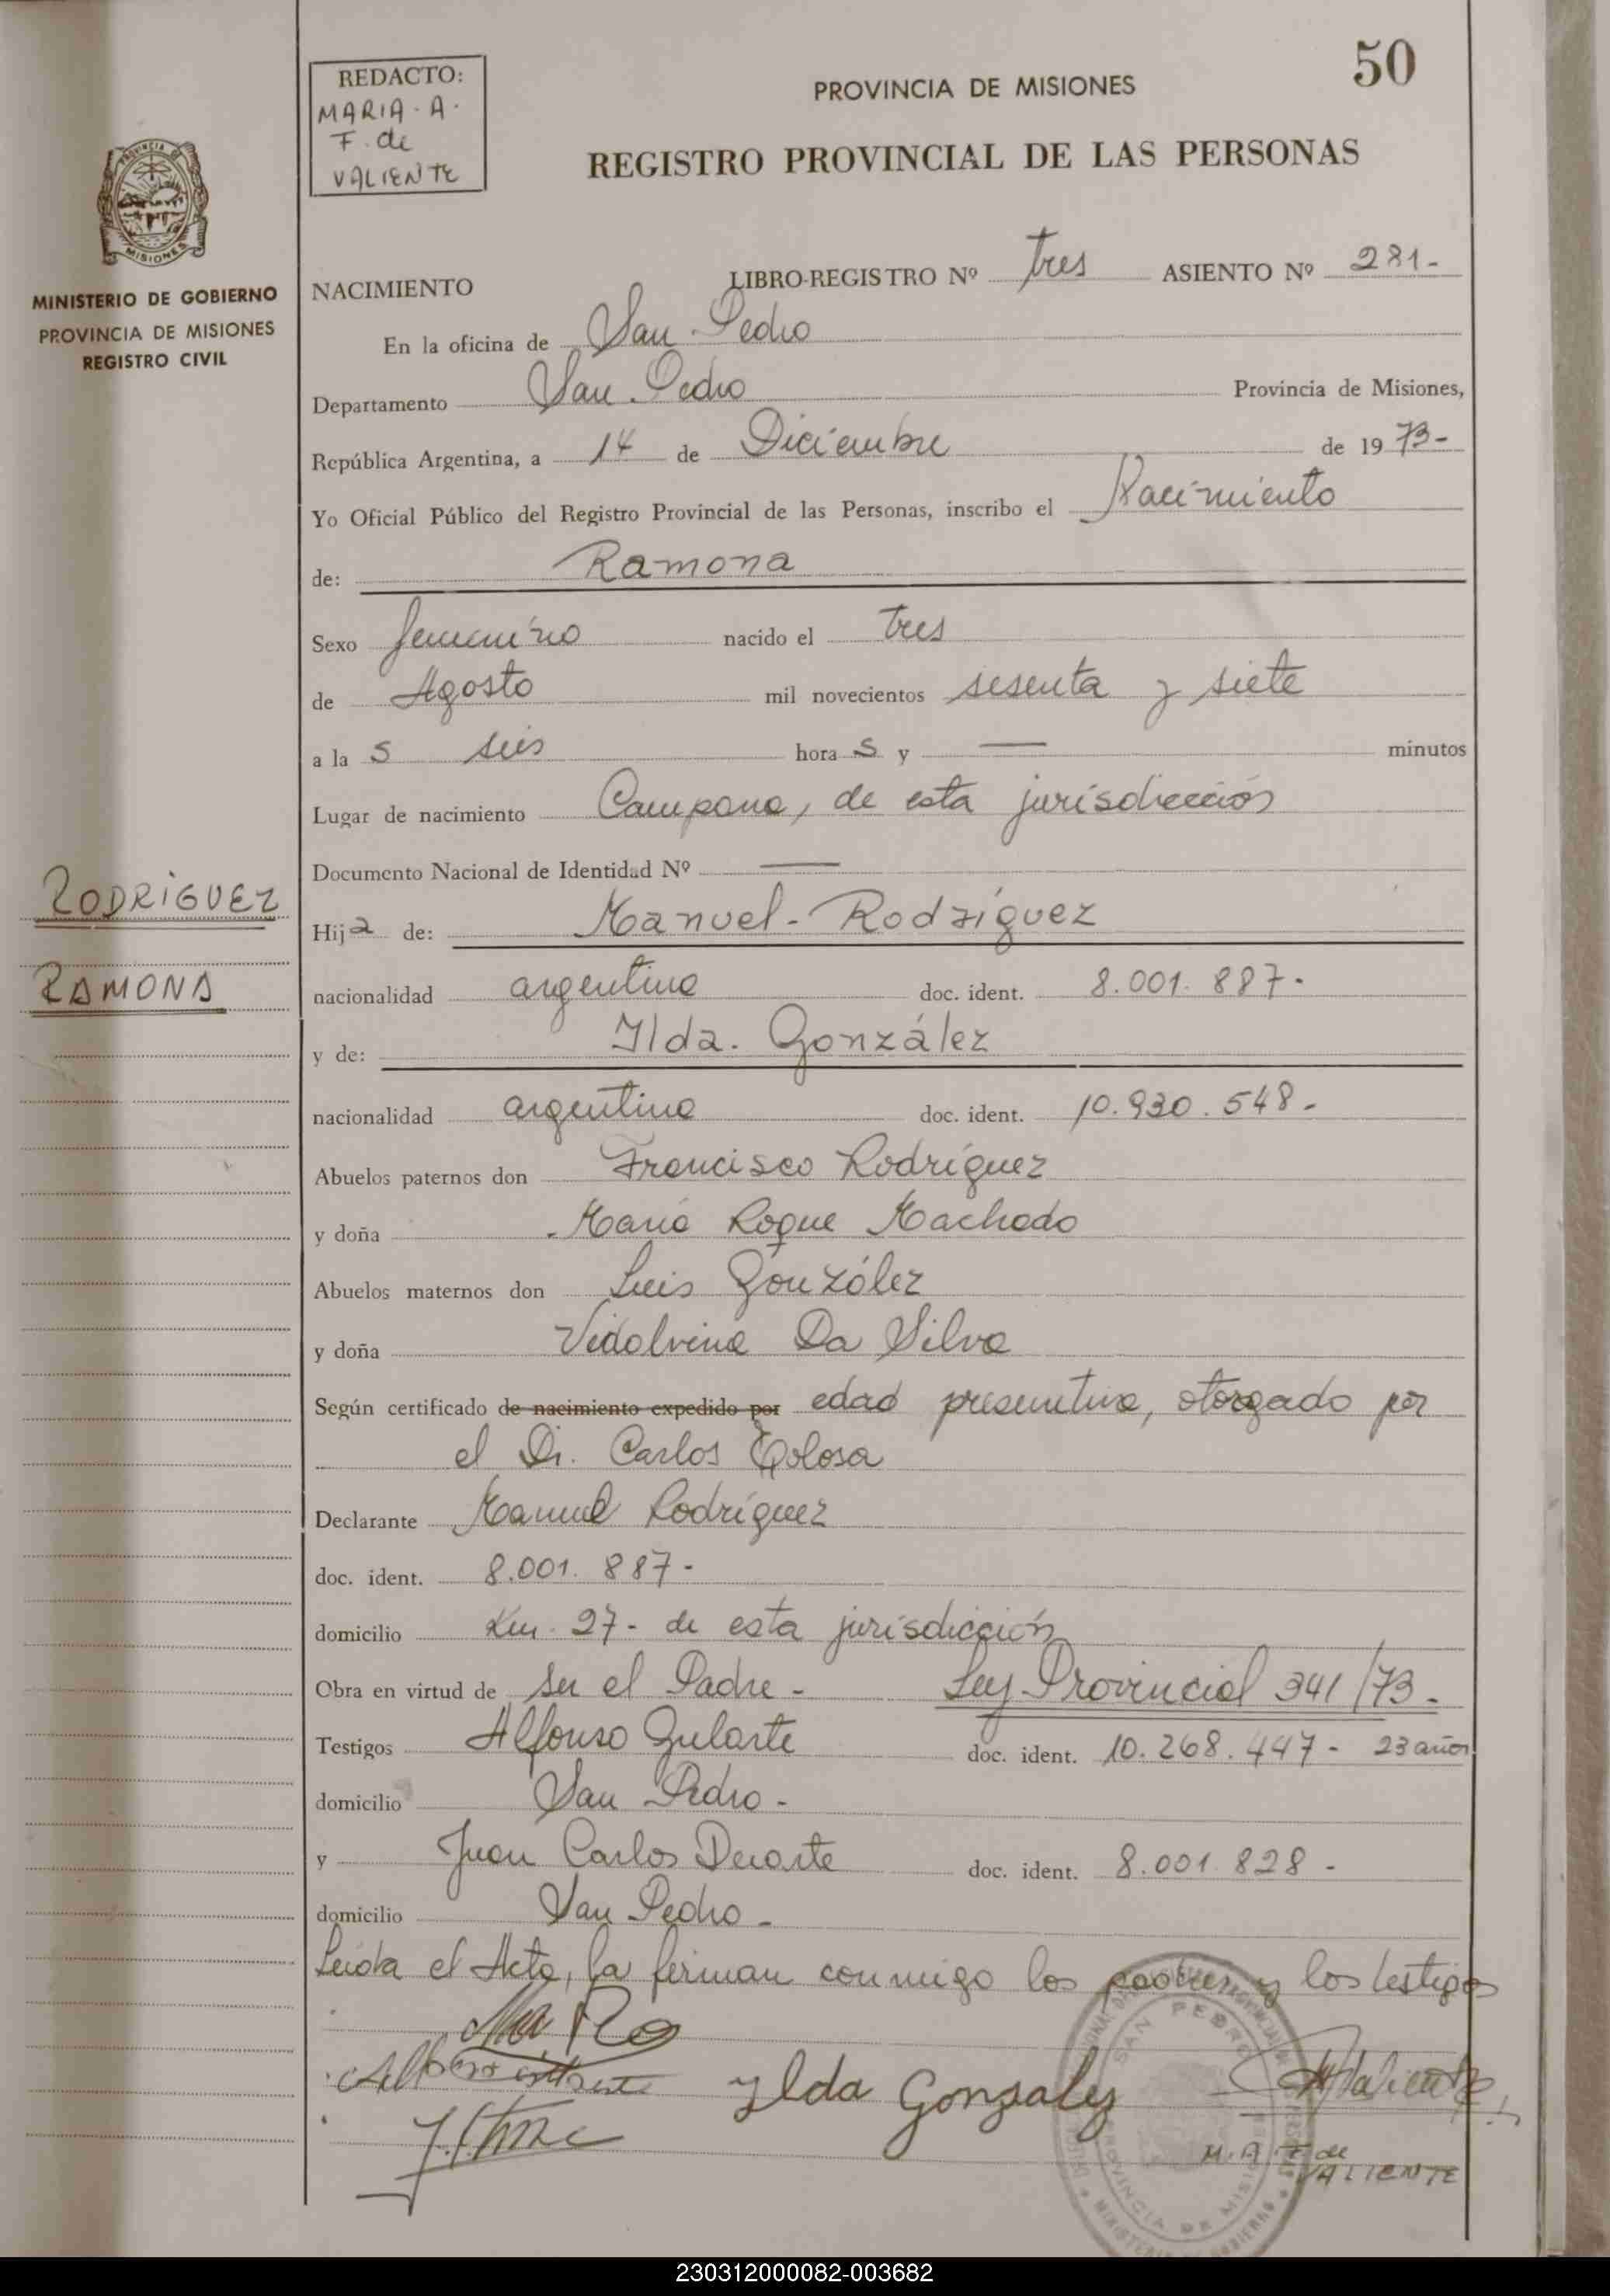 50
REDACTO:
MARIA. A.
F. de
VALIENTE
PROVINCIA DE MISIONES
REGISTRO PROVINCIAL DE LAS PERSONAS
MINISTERIO DE GOBIERNO
PROVINCIA DE MISIONES
REGISTRO CIVIL
NACIMIENTO LIBRO-REGISTRO Nº tres ASIENTO Nº 281-
En la oficina de San Pedro
Departamento San Pedro Provincia de Misiones,
República Argentina, a 14 de Diciembre de 1973-
Yo Oficial Público del Registro Provincial de las Personas, inscribo el Nacimiento
de: Ramona
Sexo femenino nacido el tres
de Agosto mil novecientos sesenta y siete
a la s seis hora s y — minutos
Lugar de nacimiento Campana, de esta jurisdicción
Documento Nacional de Identidad Nº —
RODRIGUEZ
RAMONA
Hija de: Manuel - Rodríguez
nacionalidad argentina doc. ident. 8.001.887-
y de: Ilda. González
nacionalidad argentina doc. ident. 10.930.548-
Abuelos paternos don Francisco Rodríguez
y doña María Roque Machado
Abuelos maternos don Luis González
y doña Vidalvina Da Silva
Según certificado de nacimiento expedido por edad presuntiva, otorgado por
el Dr. Carlos Tolosa
Declarante Manuel Rodríguez
doc. ident. 8.001.887-
domicilio Km. 27- de esta jurisdicción
Obra en virtud de ser el Padre - Ley Provincial 341/73-
Testigos Alfonso Gularte doc. ident. 10.268.447- 23 años
domicilio San Pedro-
y Juan Carlos Duarte doc. ident. 8.001.828-
domicilio San Pedro-
Leída el Acta, la firman conmigo los padres y los testigos
Ylda Gonzalez
M. A. F. de
VALIENTE
SAN PEDRO
PROVINCIA DE MISIONES
230312000082-003682